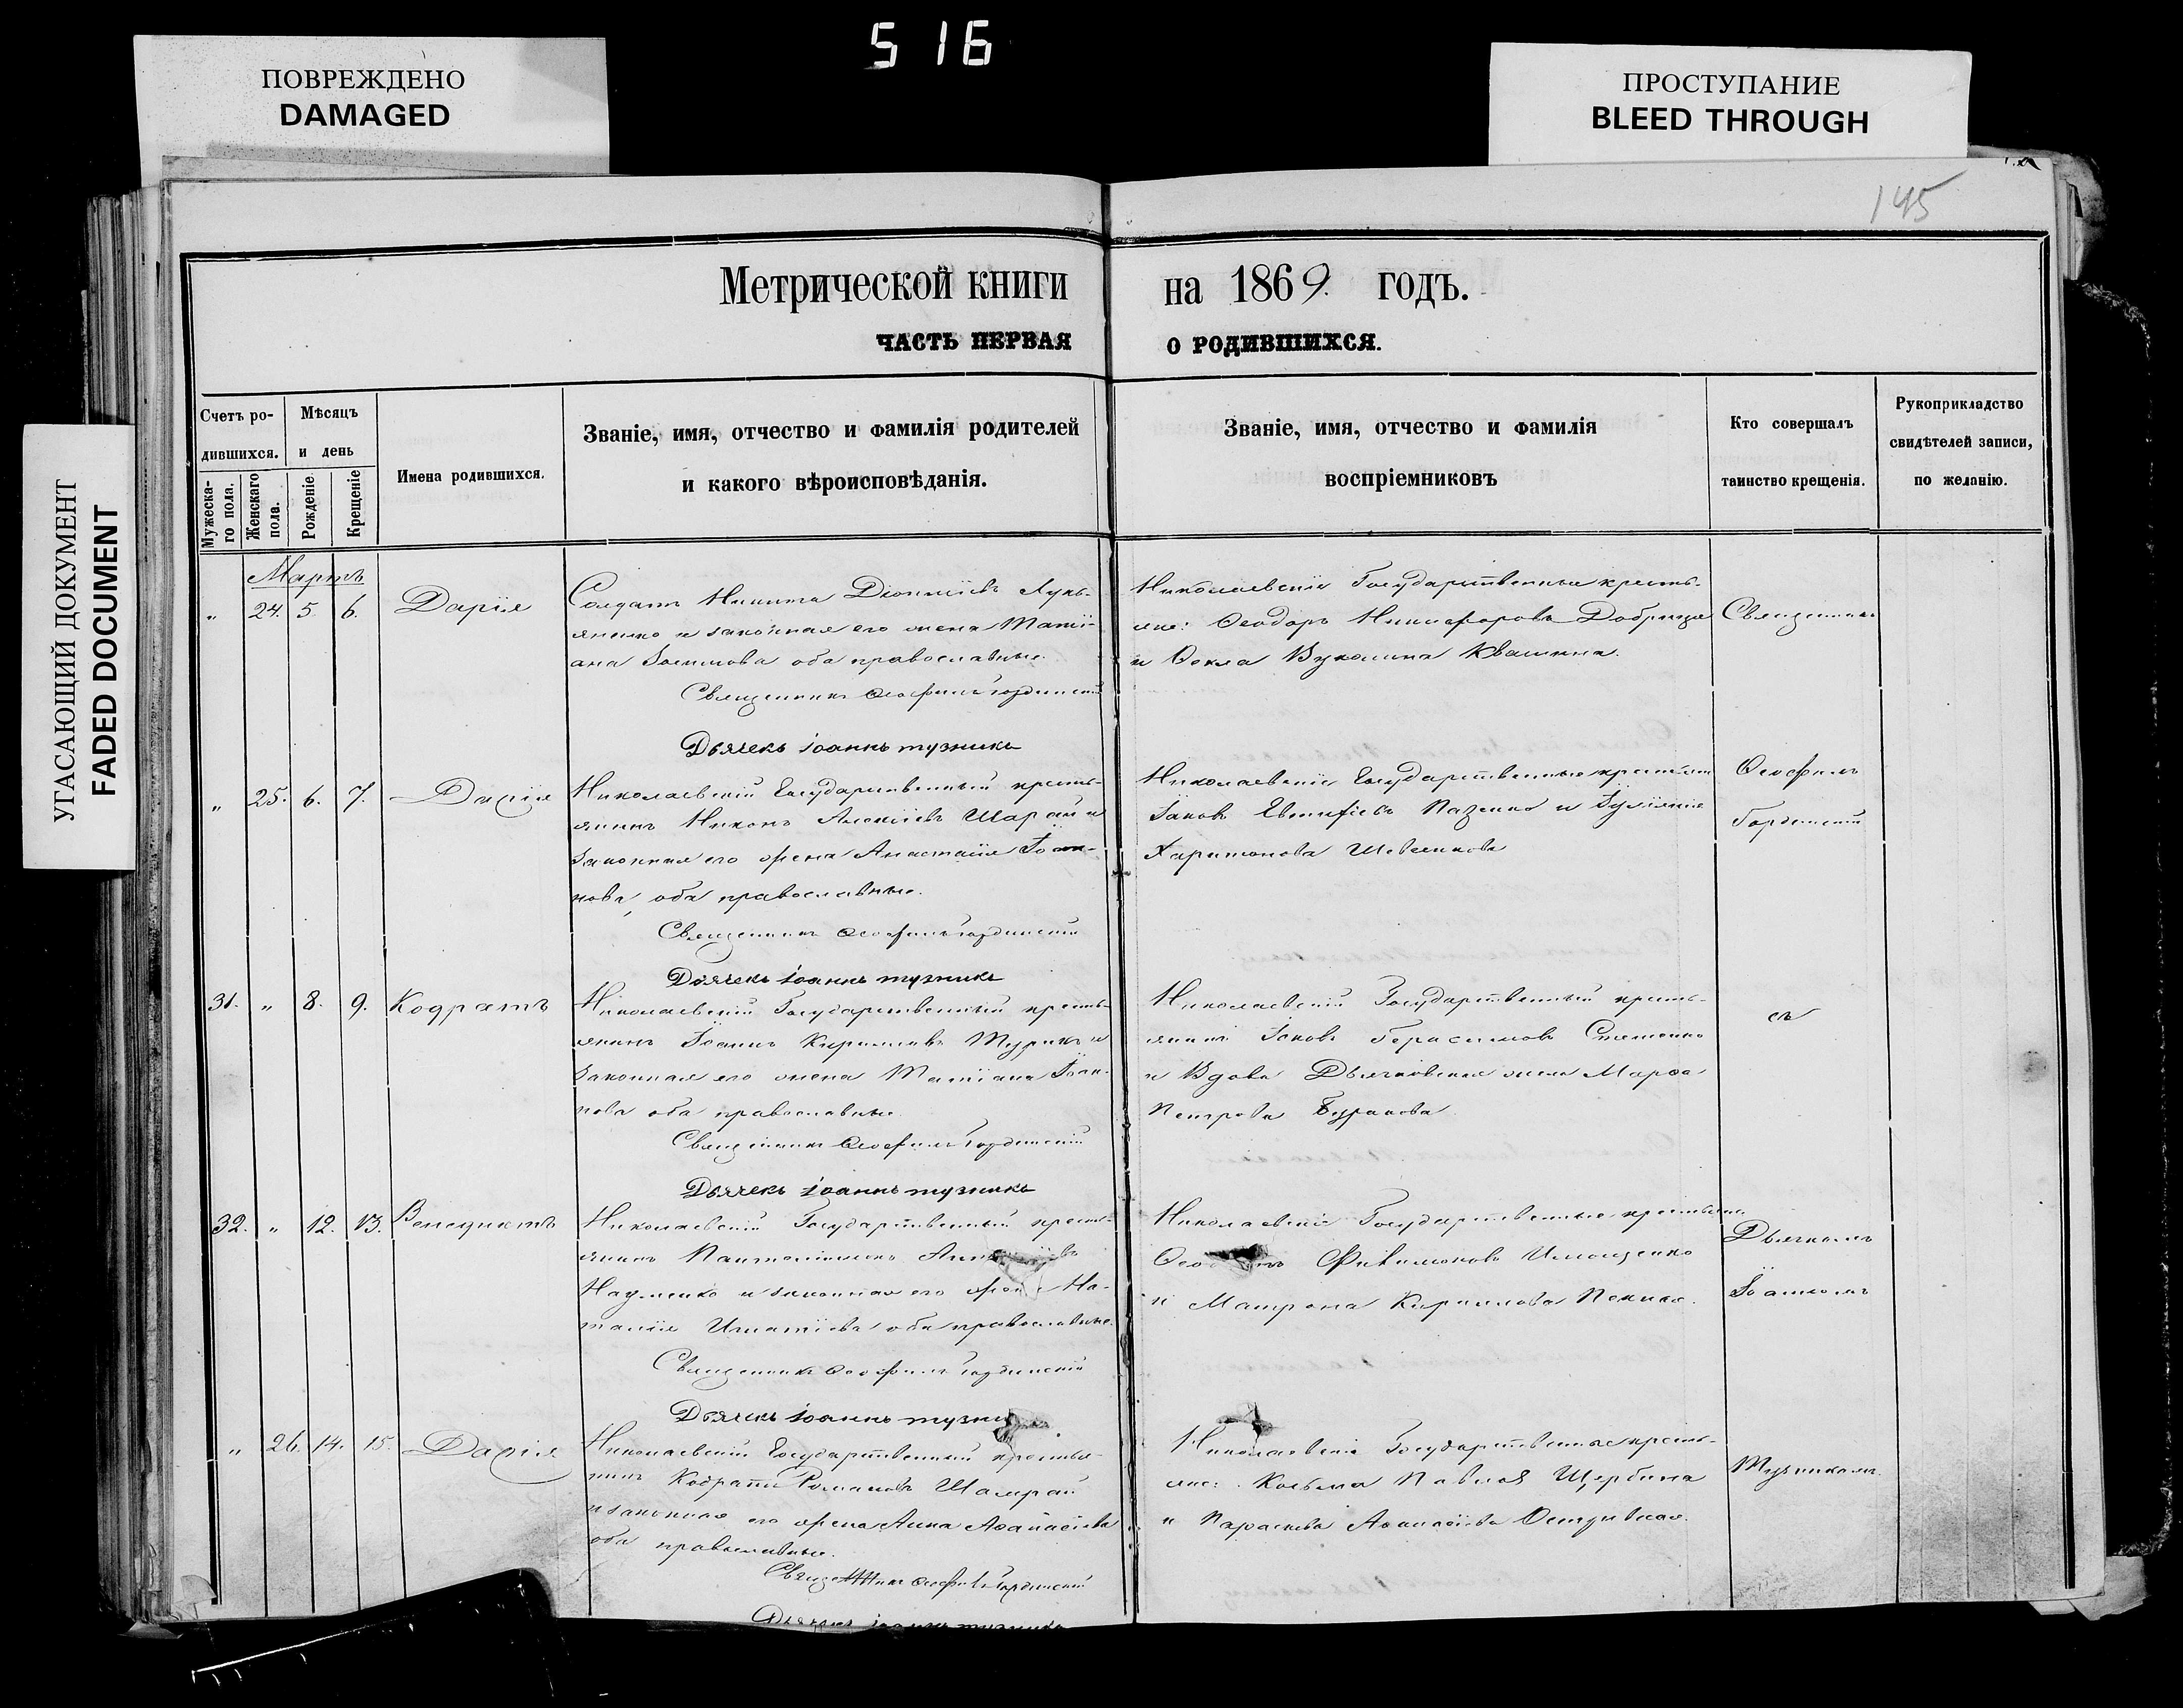 516
ПОВРЕЖДЕНО
DAMAGED
ПРОСТУПАНИЕ
BLEED THROUGH
УГАСАЮЩИЙ ДОКУМЕНТ
FADED DOCUMENT
145
Метрической книги на 1869. годъ.
ЧАСТЬ ПЕРВАЯ О РОДИВШИХСЯ.
Счетъ ро-
дившихся.
Мужеска-
го пола.
Женскаго
пола.
Мѣсяцъ
и день
Рожденіе.
Крещеніе
Имена родившихся.
Званіе, имя, отчество и фамилія родителей
и какого вѣроисповѣданія.
Званіе, имя, отчество и фамилія
воспріемниковъ
Кто совершалъ
таинство крещенія.
Рукоприкладство
свидѣтелей записи,
по желанію.
Мартъ
" 24. 5. 6. Дарія
Солдатъ Никита Діонисіевъ Лукь-
яненко и законная его жена Татіи-
ана оба православные.
Священникъ Ѳеофилъ Гордынскій
Дьячекъ Іоаннъ тузникъ
Николаевскіе Государственные кресть-
яне: Ѳеодоръ Никифоровъ
и Ѳекла Квашина.
" 25. 6. 7. Дарія
Николаевскій Государственный кресть-
янинъ Никонъ Алексіевъ и
законная его жена Анастасія Іоан-
нова, оба православные.
Священникъ Ѳеофилъ Гордынскій
Дьячекъ Іоаннъ тузникъ
Николаевскіе Государственные крестьяне
Іаковъ и Іуліанія
Харитонова Шевченкова
31. " 8. 9. Кодратъ
Николаевскій Государственный кресть-
янинъ Іоаннъ Кириловъ и
законная его жена Татіана Іоан-
нова оба православные.
Священникъ Ѳеофилъ Гордынскій
Дьячекъ Іоаннъ тузникъ
Николаевскій Государственный кресть-
янинъ Іаковъ Герасимовъ
и Вдова Дьячковская жена Марѳа
Петрова Буракова
32. " 12. 13. Венедиктъ
Николаевскій Государственный кресть-
янинъ Пантелимонъ
Науменко и законная его жена На-
талія Игнатіева оба православные.
Священникъ Ѳеофилъ Гордынскій
Дьячекъ Іоаннъ
Николаевскіе Государственные крестьяне
Филимоновъ
и Матрона Кирилова
" 26. 14. 15. Дарія
Николаевскій Государственный крестья-
нинъ Кодратъ Романовъ Шамрай
и законная его жена Анна Аѳанасіева
оба православные.
Священникъ Ѳеофилъ Гордынскій
Дьячекъ Іоаннъ тузникъ
Николаевскіе Государственные кресть-
яне: Косьма Павловъ Щербина
и Параскева
Священникъ
Ѳеофилъ
Гордынскій
съ
Дьячкомъ
Іоанномъ
Тузникомъ.